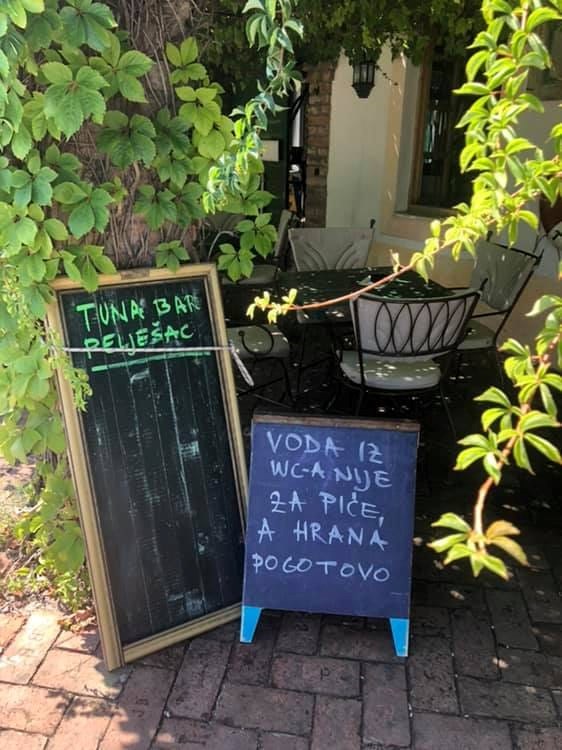 TUNA BAR
PELJEŠAC
VODA IZ
WC-A NIJE
ZA PIĆE,
A HRANA
POGOTOVO